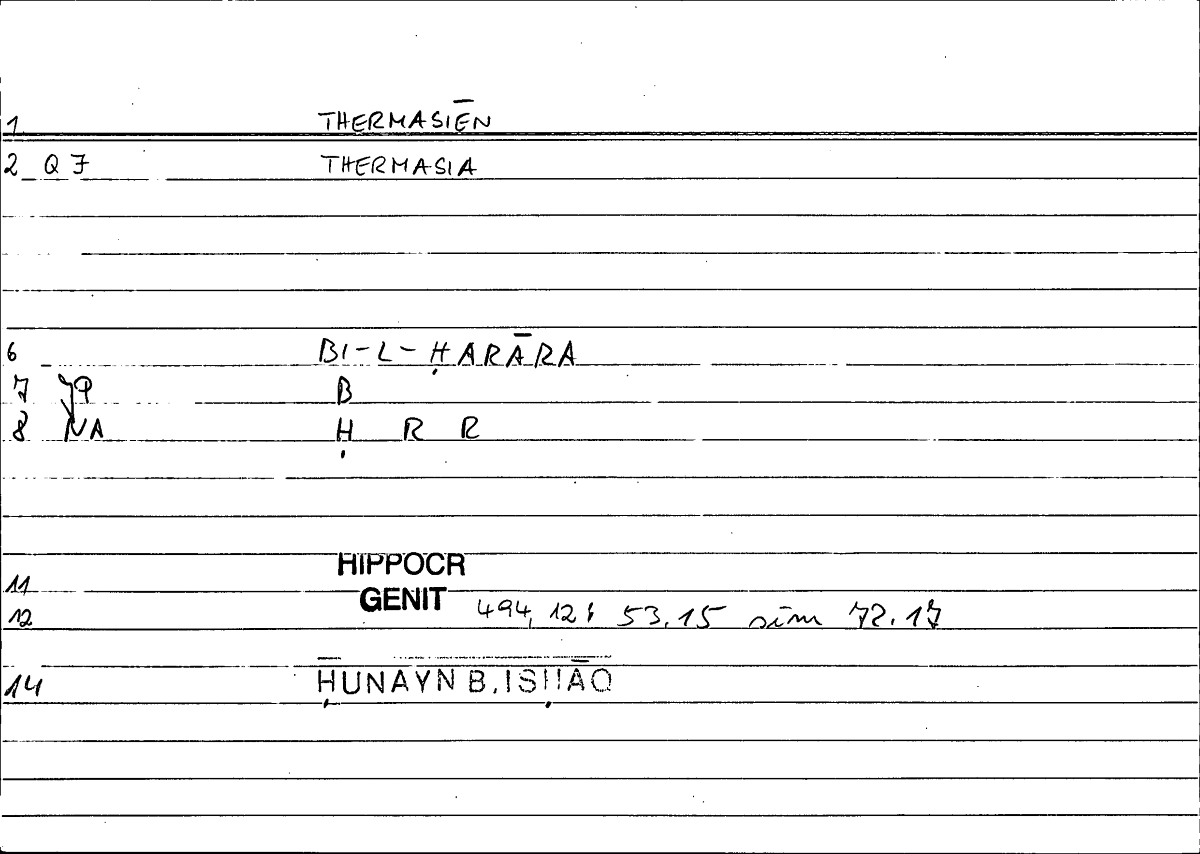 1 THERMASIĒN
2 Q J THERMASIA
6 BI-L-ḤARĀRA
7 JP B
8 NA Ḥ R R
11 HIPPOCR
12 GENIT 494, 12; 53.15 sim 72.17
14 ḤUNAYN B. ISḤĀQ